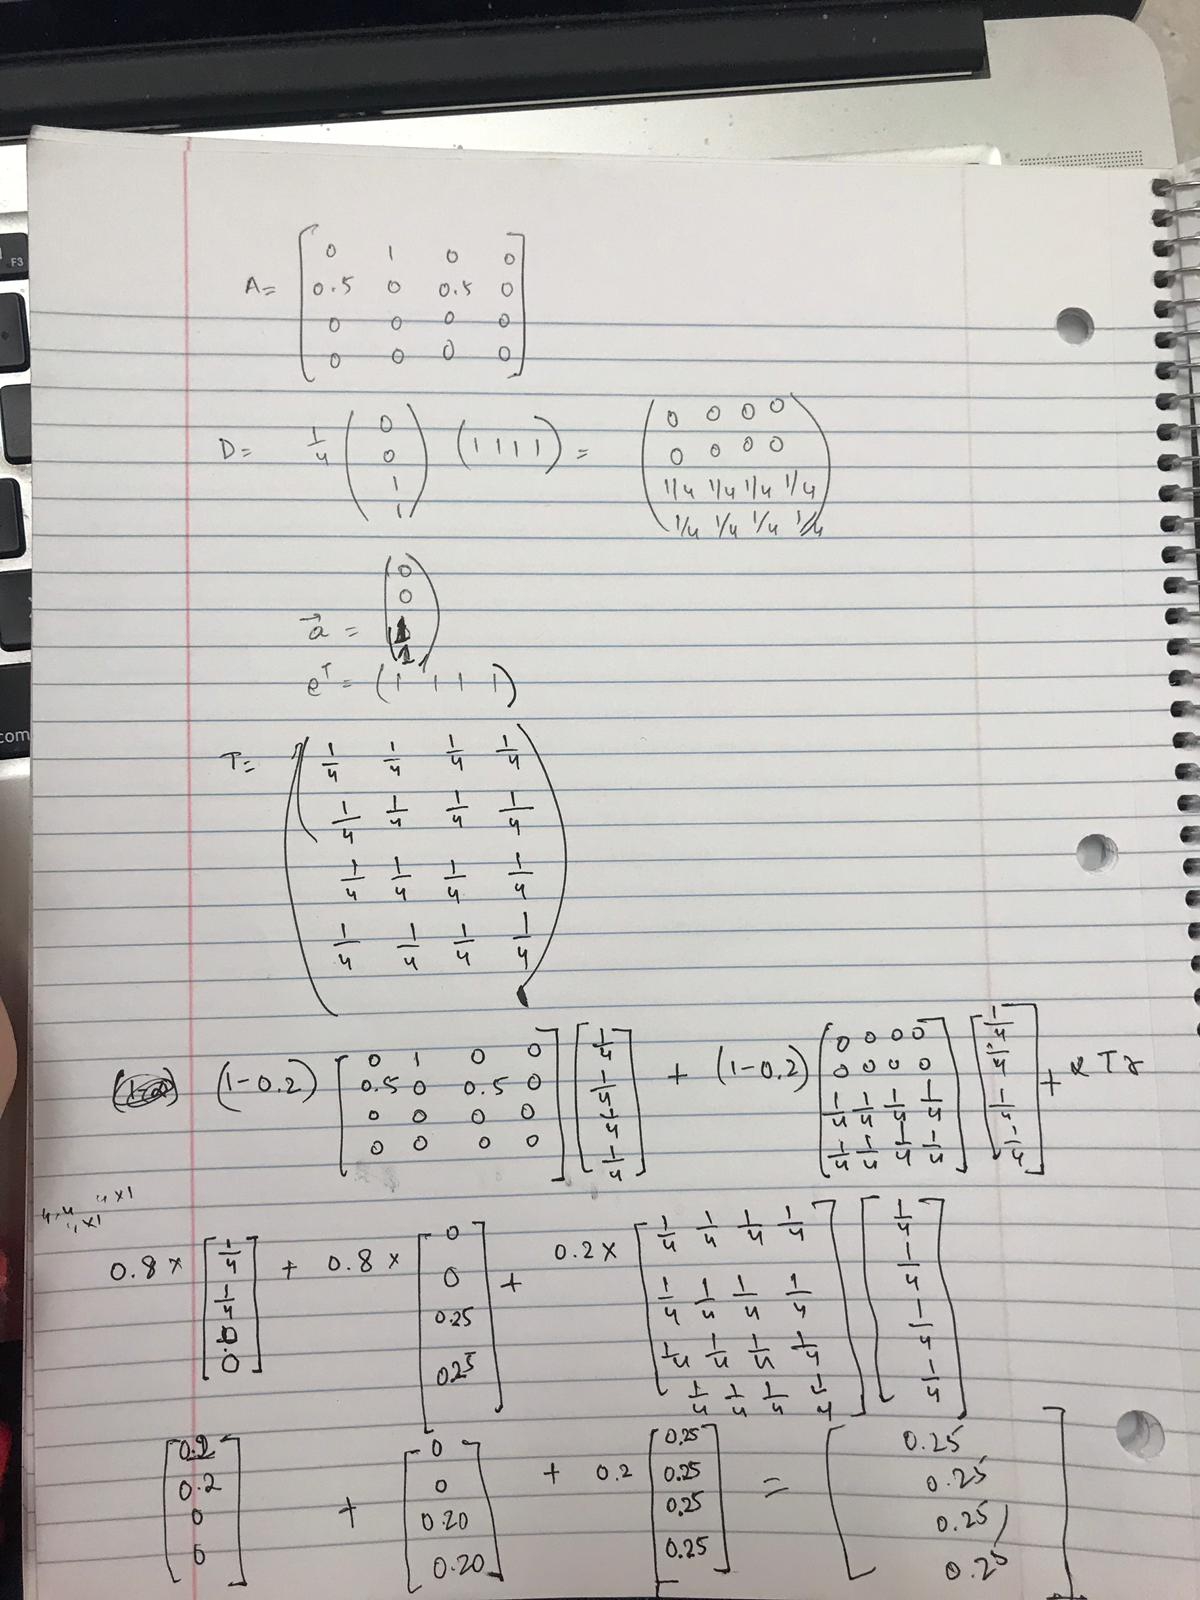 F3
A= [ 0 1 0 0
0.5 0 0.5 0
0 0 0 0
0 0 0 0 ]
D= 1/4 ( 0 0 1 1 ) ( 1 1 1 1 ) = ( 0 0 0 0
0 0 0 0
1/4 1/4 1/4 1/4
1/4 1/4 1/4 1/4 )
a⃗ = ( 0 0 1 1 )
eᵀ = ( 1 1 1 1 )
com
T= ( 1/4 1/4 1/4 1/4
1/4 1/4 1/4 1/4
1/4 1/4 1/4 1/4
1/4 1/4 1/4 1/4 )
(1-0.2) [ 0 1 0 0
0.5 0 0.5 0
0 0 0 0
0 0 0 0 ] [ 1/4 1/4 1/4 1/4 ] + (1-0.2) [ 0 0 0 0
0 0 0 0
1/4 1/4 1/4 1/4
1/4 1/4 1/4 1/4 ] [ 1/4 1/4 1/4 1/4 ] + α T r
4x1
4x1
0.8 × [ 1/4 1/4 0 0 ] + 0.8 × [ 0 0 0.25 0.25 ] + 0.2 × [ 1/4 1/4 1/4 1/4
1/4 1/4 1/4 1/4
1/4 1/4 1/4 1/4
1/4 1/4 1/4 1/4 ] [ 1/4 1/4 1/4 1/4 ]
[ 0.2 0.2 0 0 ] + [ 0 0 0.20 0.20 ] + 0.2 [ 0.25 0.25 0.25 0.25 ] = [ 0.25 0.25 0.25 0.25 ]